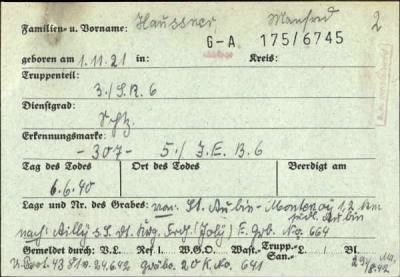 Familien- u. Vorname: Haussner Manfred 2
G-A 175/6745
geboren am 1.11.21 in: Kreis:
Truppenteil:
3./S.R.6
Dienstgrad:
Schtz.
Erkennungsmarke:
-307- 5./J.E.B.6
Tag des Todes Ort des Todes Beerdigt am
6.6.40
Lage und Nr. des Grabes: von: St. Aubin-Montenoy 1,2 km
südl. Aubin
nach: Ailly s.S. dt. Krg. Frdh. (Joly) E.Grb. No. 664
Gemeldet durch: V.L. Ref I. W.G.O. Wast.- Trupp.- San.- L./ Bl.
43 24.6.42 Gräbo. 20 K.No. 641